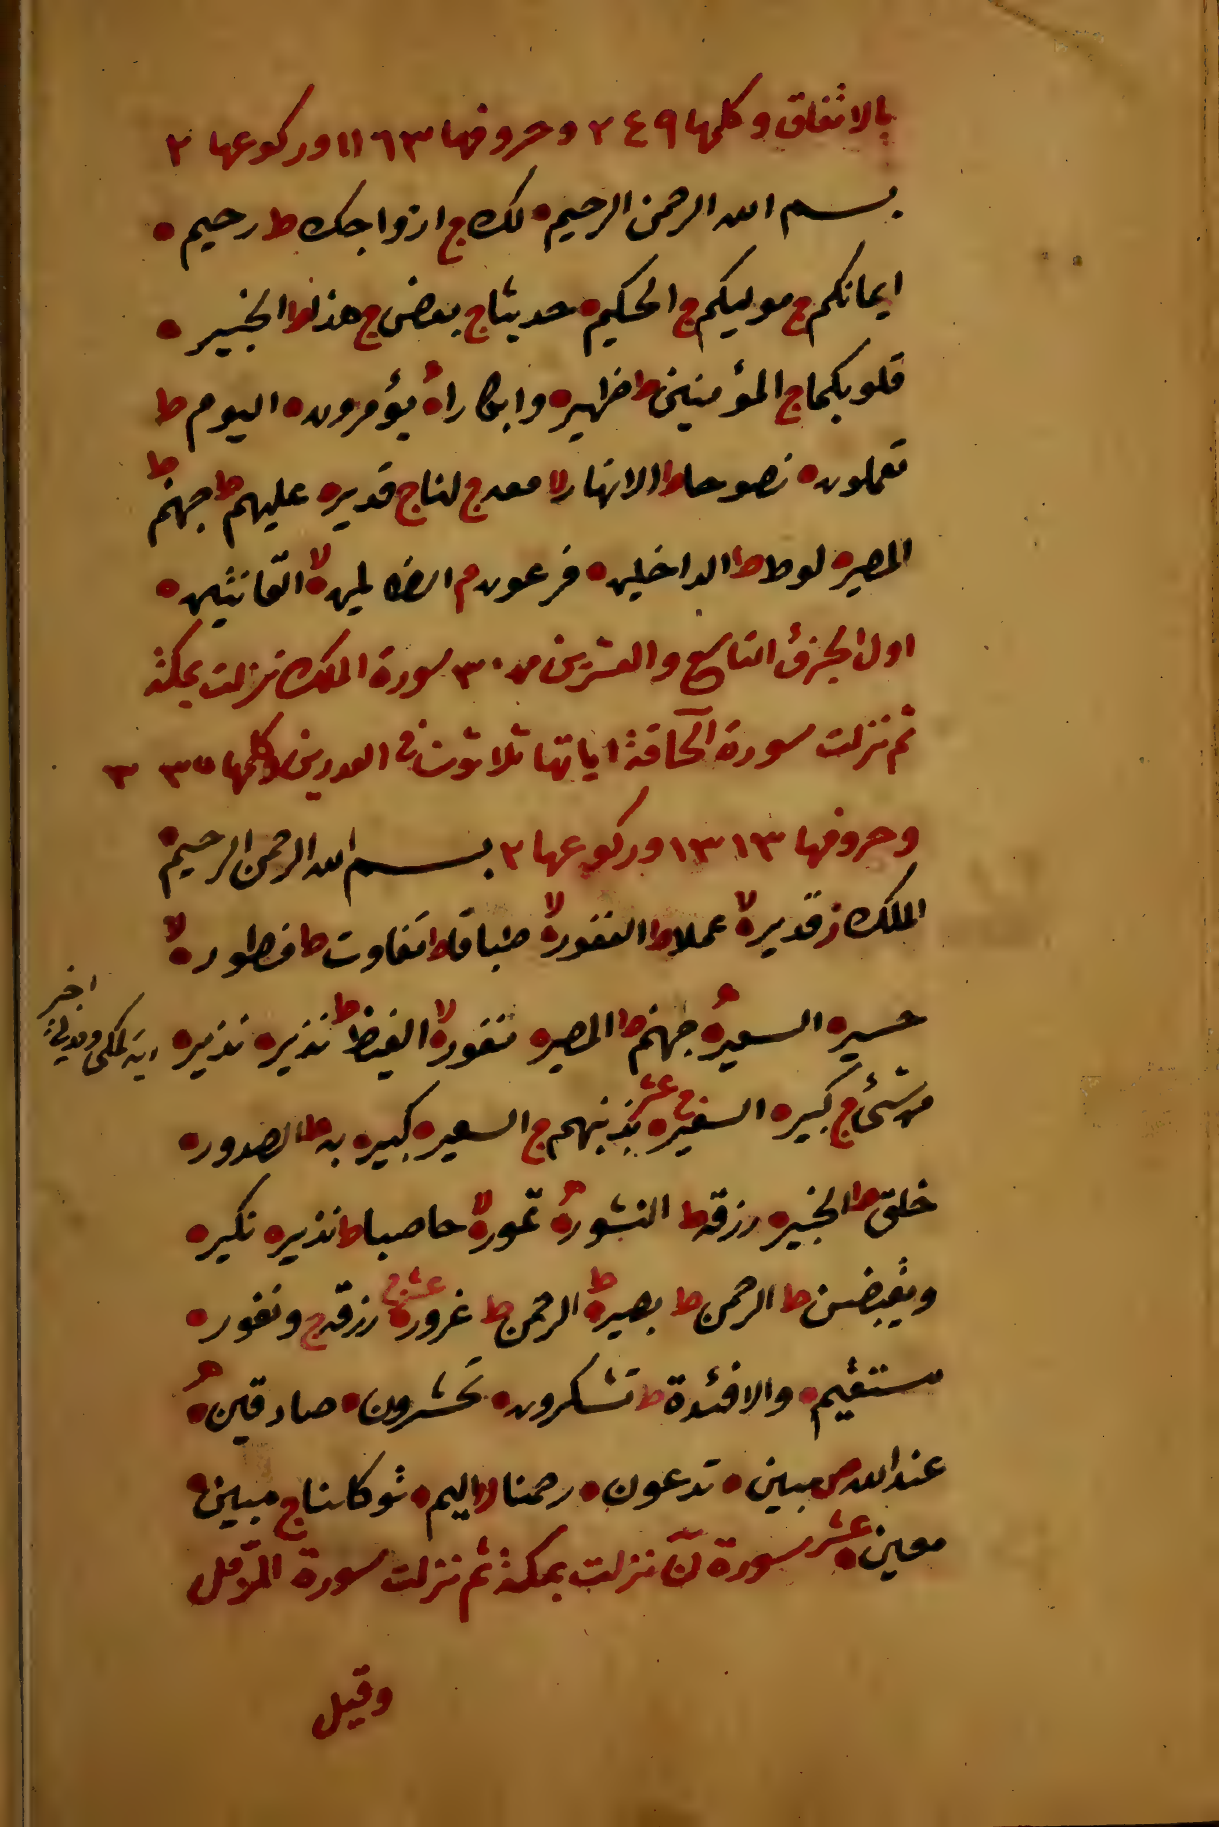 بالاتفاق وكلمها ٢٤٩ وحروفها ١١٦٣ وركوعها ٢
بسم الله الرحمن الرحيم ه لك ج ازواجك ط رحيم ه
ايمانكم ج موليكم ج الحكيم ه حديثا ج بعض ج هذا ط الخبير ه
قلوبكما ج المؤمنين ط ظهير ه وابكارا ه يؤمرون ه اليوم ط
تعملون ه نصوحا ط الانهار لا معه ج لنا ج قدير ه عليهم ط جهنم ط
المصير ه لوط ط الداخلين ه فرعون م الظالمين ه لا القانتين ه
اول الجزؤ التاسع والعشرين من ٣٠ سورة الملك نزلت بمكة
ثم نزلت سورة الحاقة اياتها ثلاثون في العددين وكلمها ٣٣٥
وحروفها ١٣١٣ وركوعها ٢ بسم الله الرحمن الرحيم ه
الملك ز قدير ه لا عملا ط الغفور ه لا طباقا ط تفاوت ط فطور ه لا
حسير ه السعير ه جهنم ط المصير ه تفور ه لا الغيظ ط نذير ه نذير ه
اية لمكى ومدني
اخير
من شئ ج كبير ه السعير ه عشر بذنبهم ج السعير ه كبير ه به ط الصدور ه
خلق ط الخبير ه رزقه ط النشور ه تمور ه لا حاصبا ط نذير ه نكير ه
ويقبضن ط الرحمن ط بصير ه ط الرحمن ط غرور ه عشر رزقه ج ونفور ه
مستقيم ه والافئدة ط تشكرون ه تحشرون ه صادقين ه
عند الله ص مبين ه تدعون ه رحمنا لا اليم ه توكلنا ج مبين ه
معين ه عشر سورة ن نزلت بمكة ثم نزلت سورة المزمل
وقيل